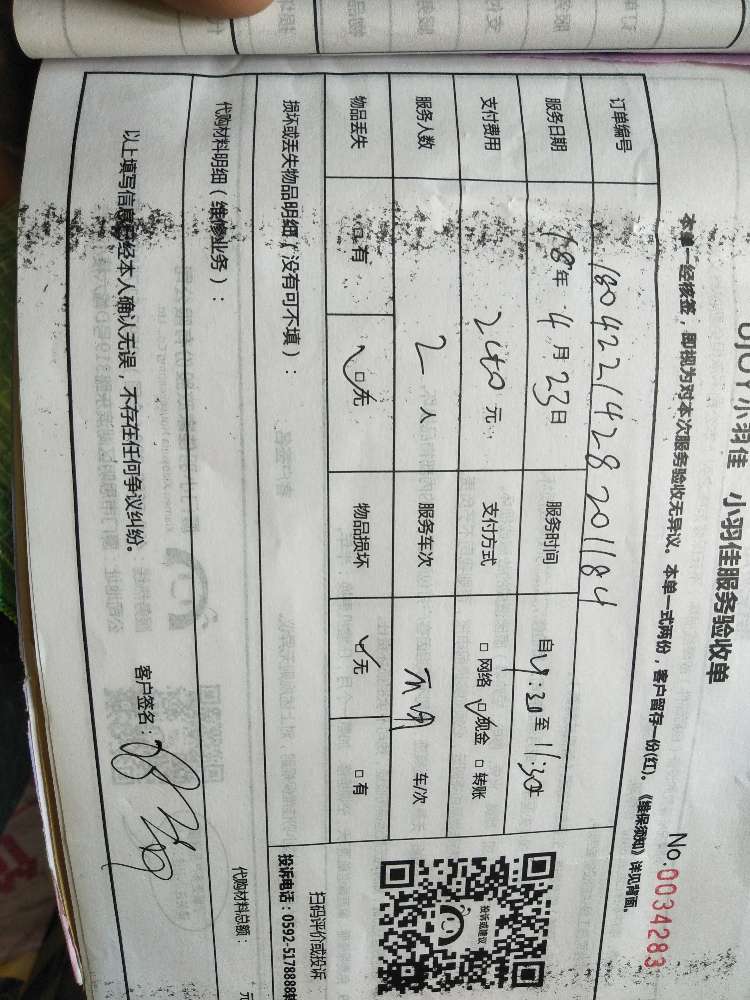 UJOY小羽佳 小羽佳服务验收单
No.0034283
本单一经核签，即视为对本次服务验收无异议。本单一式两份，客户留存一份(红)。《维保须知》详见背面。
订单编号 180422142820 1184
服务日期 18年 4月 23日 服务时间 自 :30 至 11:30
支付费用 240元 支付方式 □网络 ☑现金 □转账
服务人数 2人 服务车次 车/次
物品丢失 □有 ☑无 物品损坏 ☑无 □有
损坏或丢失物品明细（没有可不填）：
投诉或建议
扫码评价或投诉
投诉电话：0592-5178888转
代购材料明细（维修业务）：
代购材料总额： 元
以上填写信息已经本人确认无误，不存在任何争议纠纷。
客户签名：